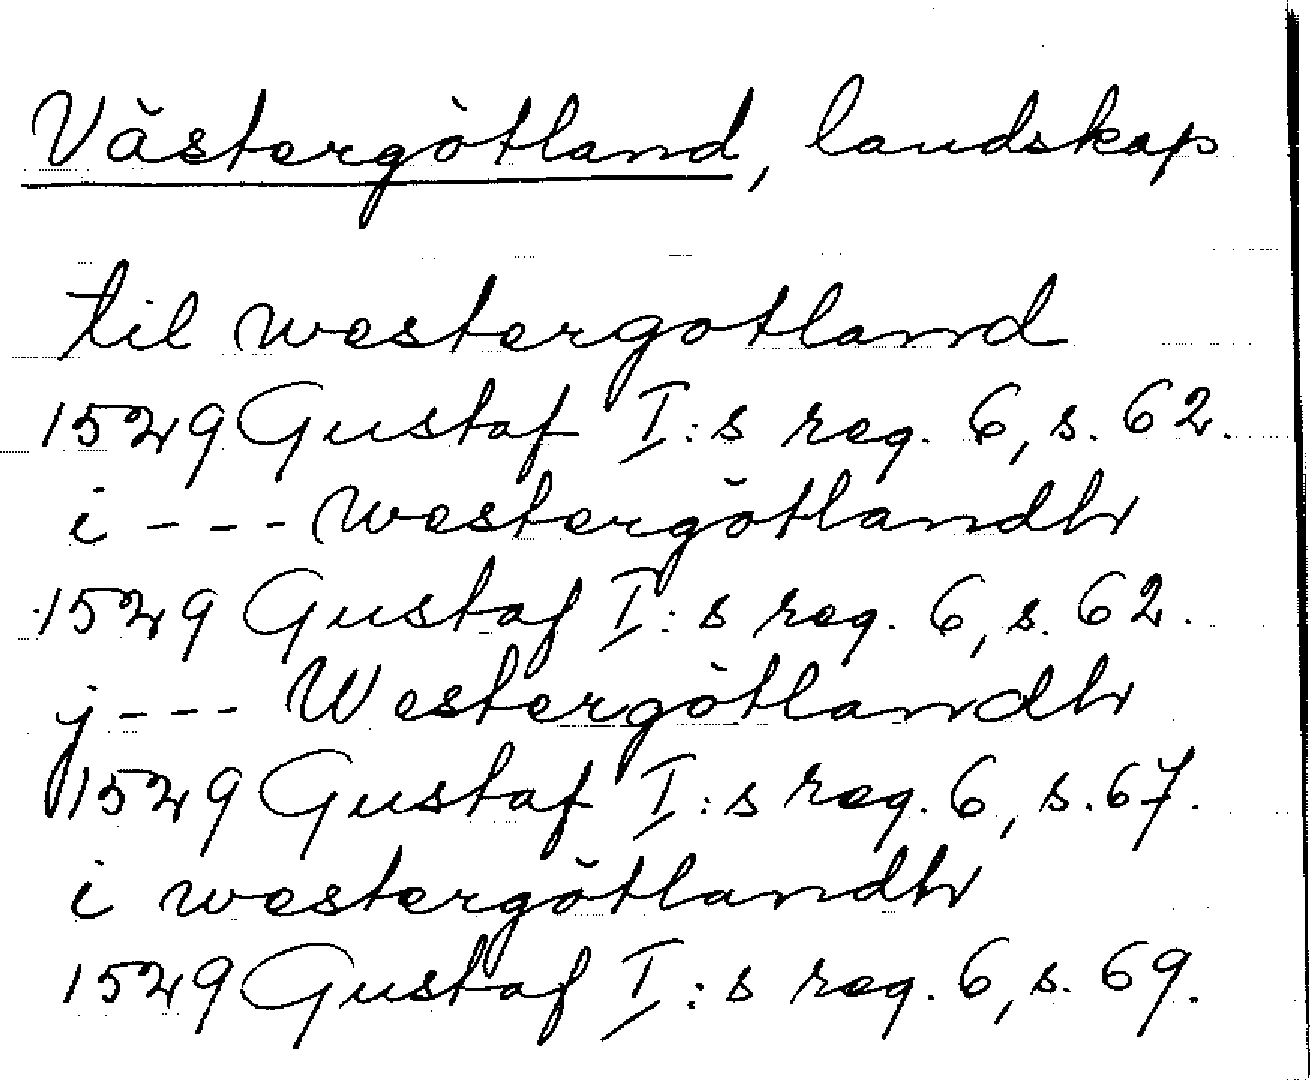 Västergötland, landskap
til westergotland
1529 Gustaf I:s reg. 6, s. 62.
i --- westergötlandh
1529 Gustaf I:s reg. 6, s. 62.
j --- Westergötlandh
1529 Gustaf I:s reg. 6, s. 67.
i westergötlandh
1529 Gustaf I:s reg. 6, s. 69.